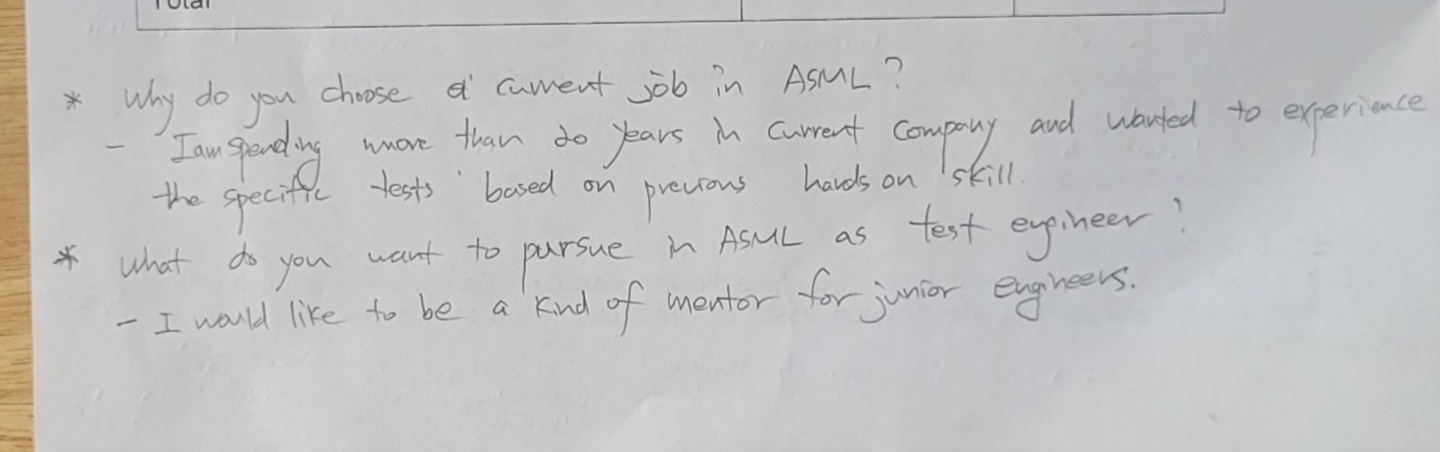 Total
* Why do you choose a current job in ASML?
- I am spending more than 20 years in current company and wanted to experience
the specific tests based on previous hands on skill.
* What do you want to pursue in ASML as test engineer?
- I would like to be a kind of mentor for junior engineers.